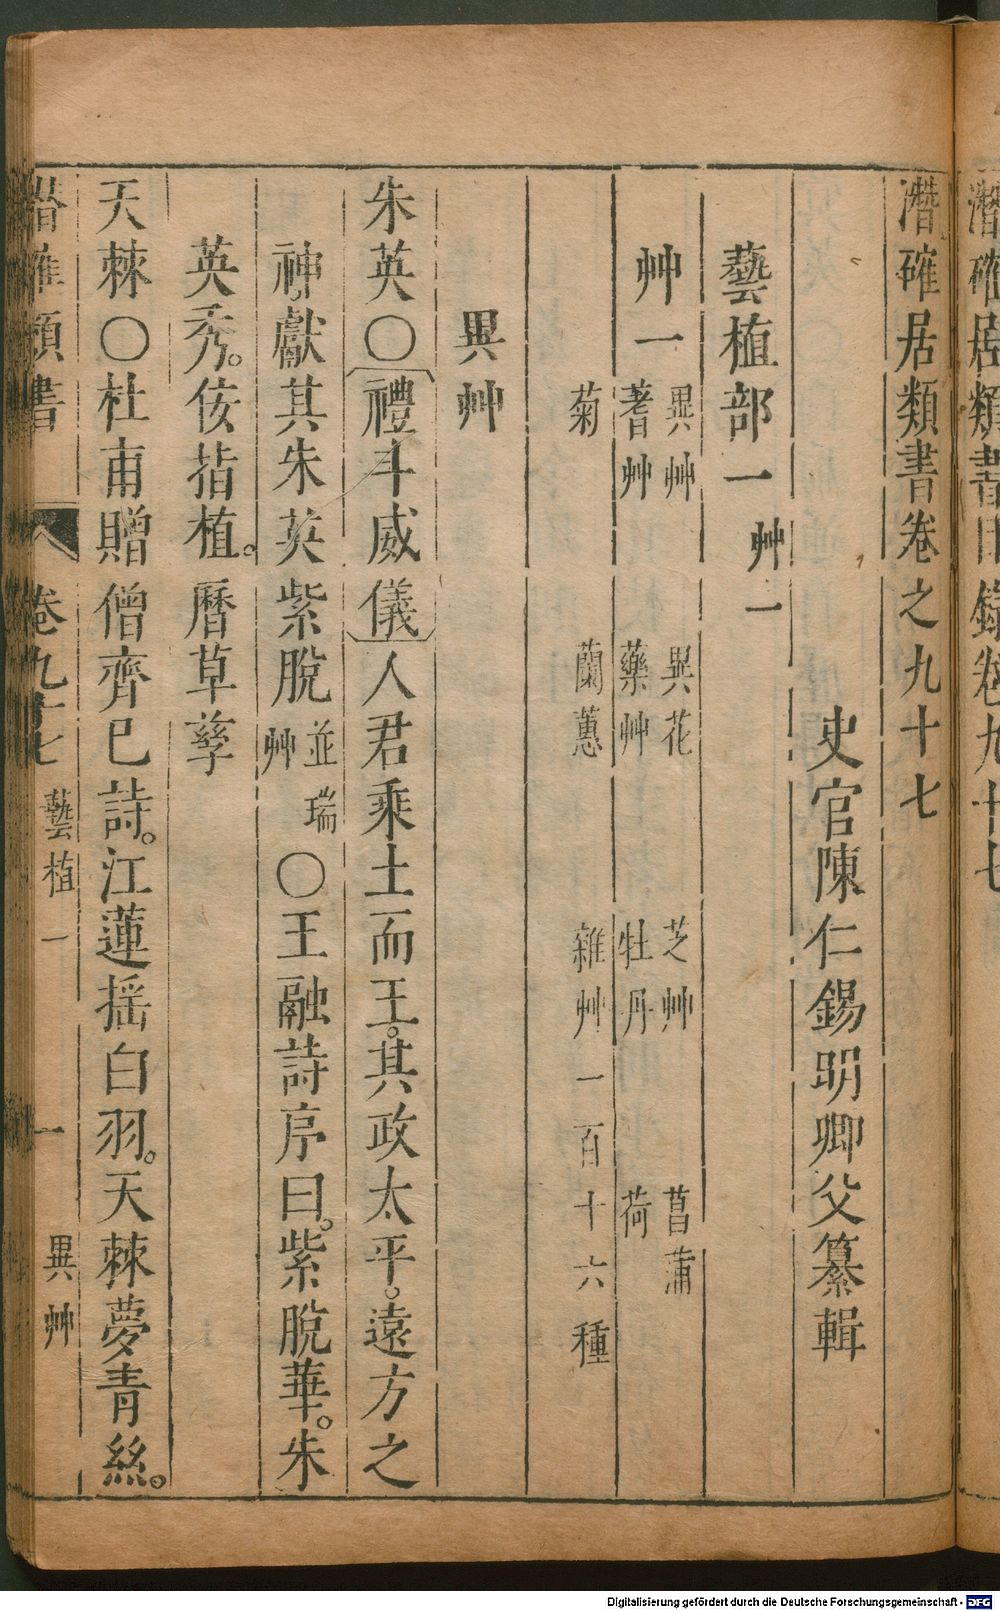 潛確居類書目錄卷九十七
潛確居類書卷之九十七
史官陳仁錫明卿父纂輯
藝植部一 艸一
艸一 異艸 異花 芝艸 菖蒲
蓍艸 藥艸 牡丹 荷
菊 蘭蕙 雜艸一百十六種
異艸
朱英〇禮斗威儀人君乘土而王。其政太平。遠方之
神。獻其朱英紫脫並瑞艸〇王融詩序曰。紫脫華。朱
英秀。佞枝植。曆草孳
天棘〇杜甫贈僧齊已詩。江蓮摇白羽。天棘夢青絲。
潛確類書 卷九十七 藝植一 一 異艸
Digitalisierung gefördert durch die Deutsche Forschungsgemeinschaft - DFG